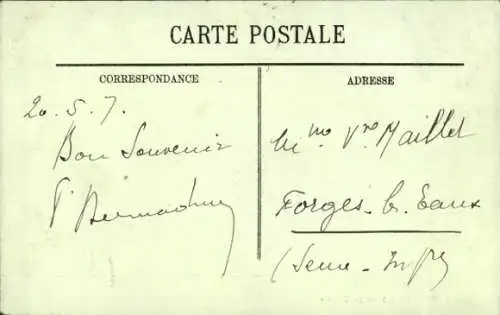 CARTE POSTALE
CORRESPONDANCE
ADRESSE
20.5.7.
Bon Souvenir
Vve Maillet
Forges-l.-Eaux
(Seine-Infre